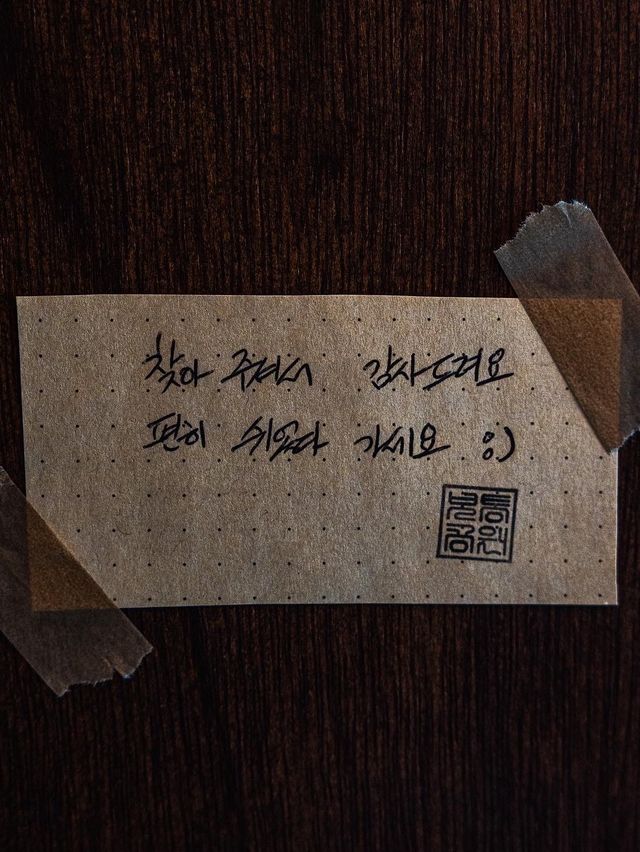 찾아 주셔서 감사드려요
편히 쉬었다 가세요 :)